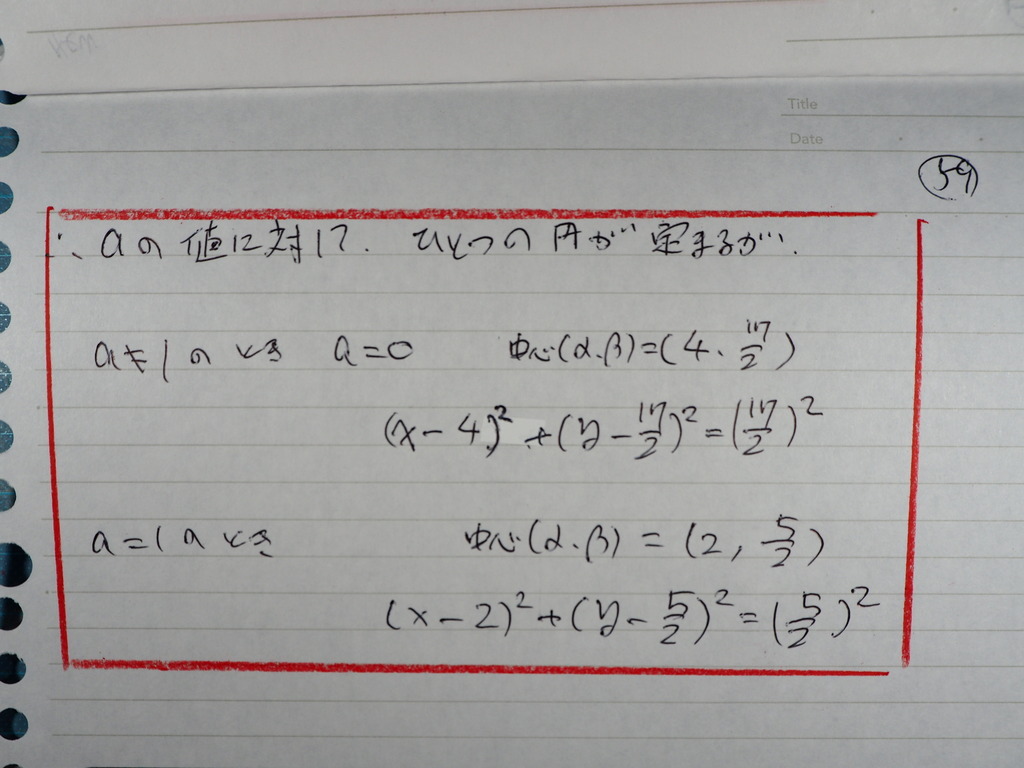 Title
Date
59
∴ aの値に対して. ひとつの円が定まるが.
a≠1のとき a=0 中心(α.β)=(4.17/2)
(x-4)²+(y-17/2)²=(17/2)²
a=1のとき 中心(α.β)=(2,5/2)
(x-2)²+(y-5/2)²=(5/2)²